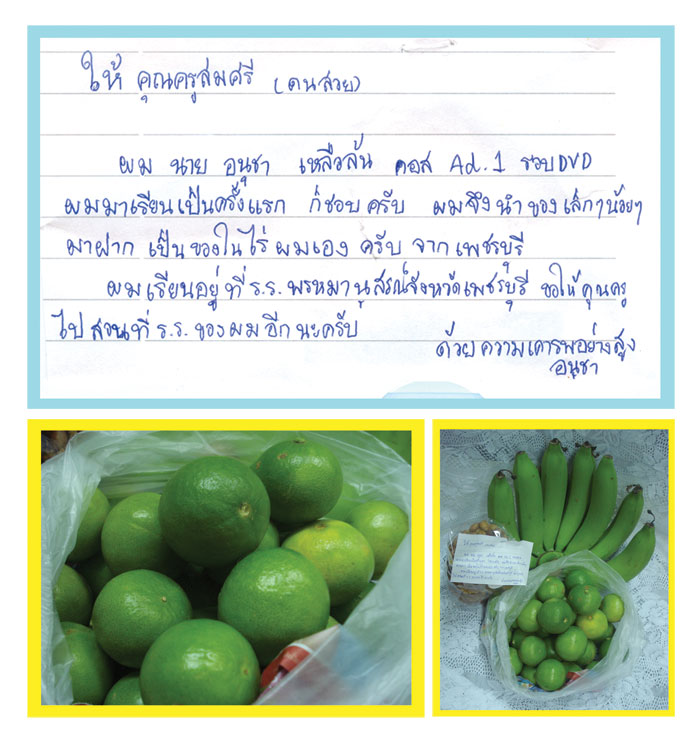 ให้ คุณครูสมศรี (คนสวย)
ผม นาย อนุชา เหลือล้น คอส Ad.1 รอบ DVD
ผมมาเรียนเป็นครั้งแรก ก็ชอบ ครับ ผมจึงนำ ของ เล็กๆน้อยๆ
มาฝาก เป็น ของในไร่ ผมเอง ครับ จาก เพชรบุรี
ผมเรียนอยู่ ที่ ร.ร. พรหมานุสรณ์จังหวัดเพชรบุรี ขอให้ คุณครู
ไป สอนที่ ร.ร. ของผม อีก นะครับ
ด้วย ความเคารพอย่างสูง
อนุชา